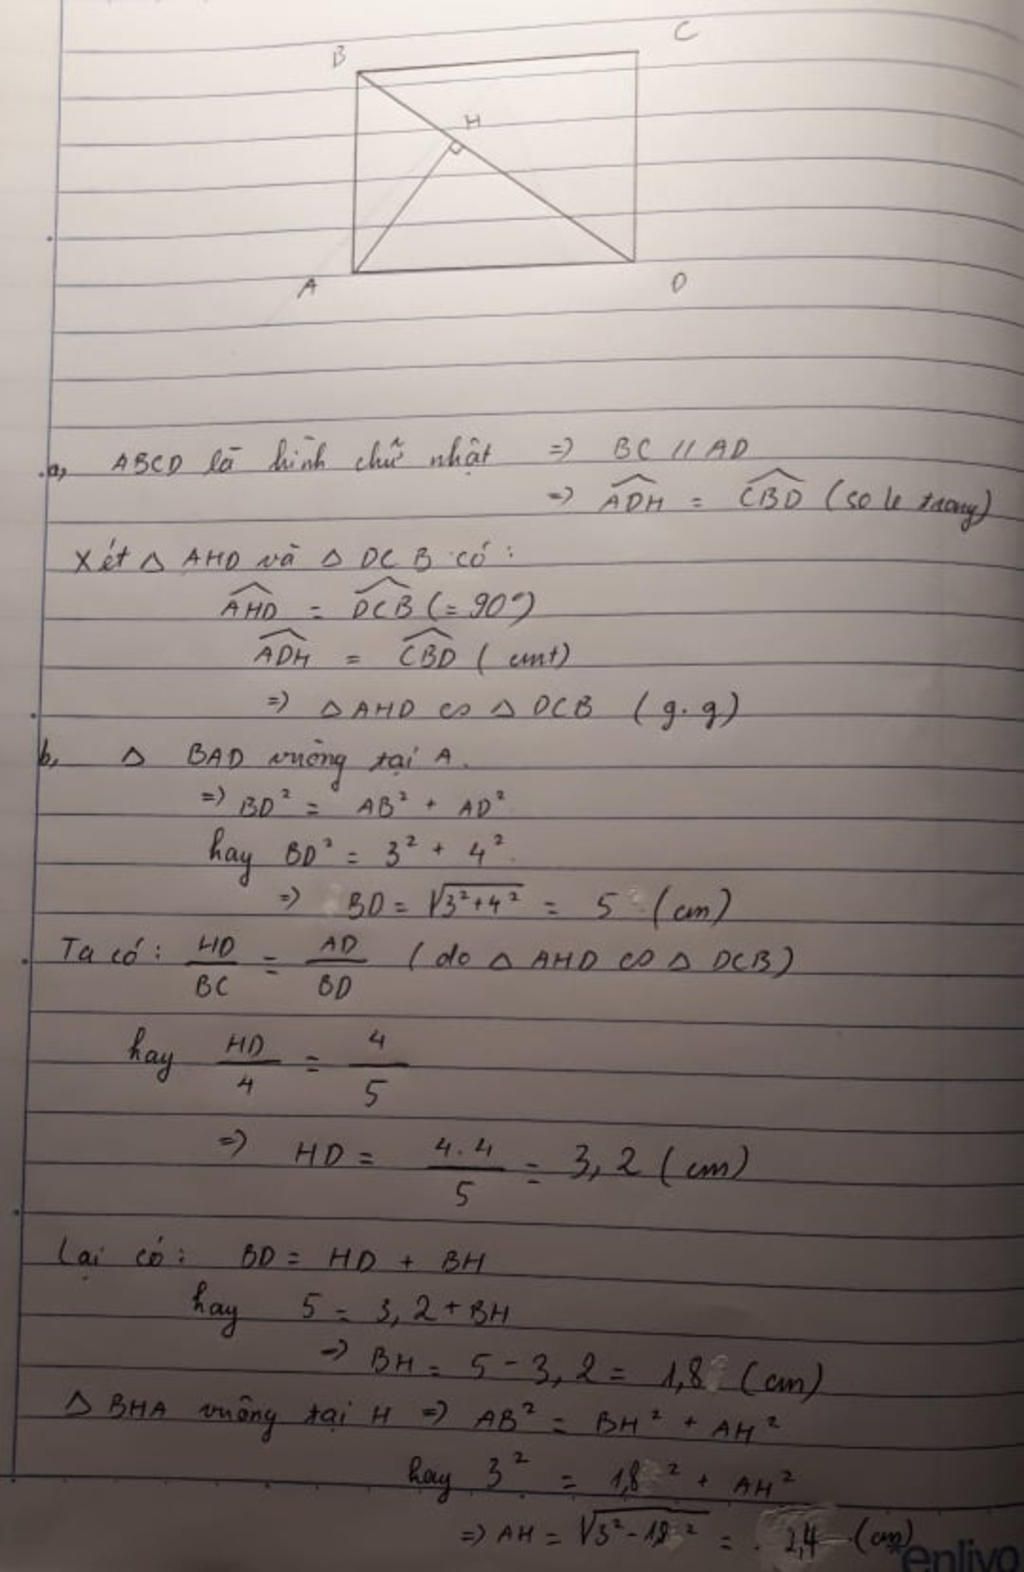 B
C
H
A
D
a, ABCD là hình chữ nhật => BC // AD
=> ADH = CBD (so le trong)
Xét △ AHD và △ DCB có:
AHD = DCB (= 90°)
ADH = CBD (cmt)
=> △ AHD ∽ △ DCB (g.g)
b, △ BAD vuông tại A.
=> BD² = AB² + AD²
hay BD² = 3² + 4²
=> BD = √3²+4² = 5 (cm)
Ta có: HD/BC = AD/BD (do △ AHD ∽ △ DCB)
hay HD/4 = 4/5
=> HD = 4.4/5 = 3,2 (cm)
Lại có: BD = HD + BH
hay 5 = 3,2 + BH
=> BH = 5 - 3,2 = 1,8 (cm)
△ BHA vuông tại H => AB² = BH² + AH²
hay 3² = 1,8² + AH²
=> AH = √3² - 1,8² = 2,4 (cm)
enlivo